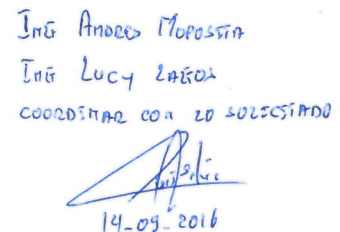 Ing Andres Moposita
Ing Lucy Lagos
COORDINAR CON LO SOLICITADO
14-09-2016